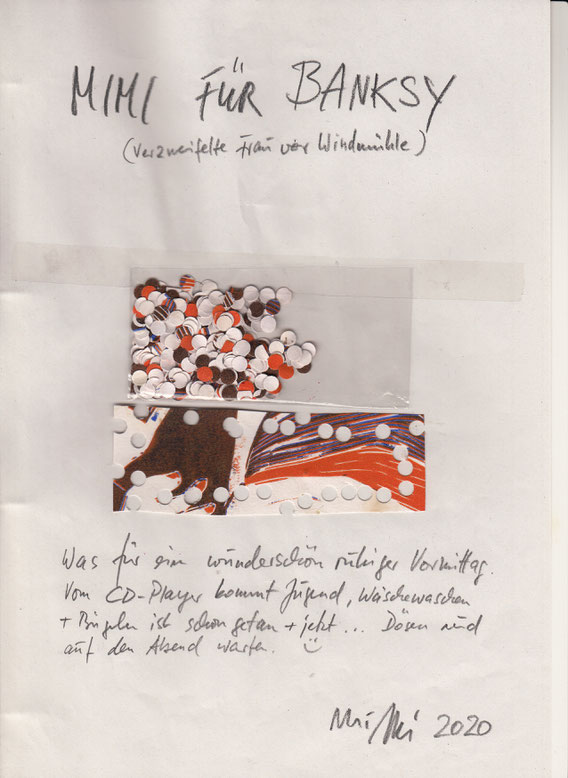 MIMI FÜR BANKSY
(Verzweifelte Frau vor Windmühle)
Was für ein wunderschön ruhiger Vormittag.
Vom CD-Player kommt Jugend, Wäschewaschen
+ Bügeln ist schon getan + jetzt... Dösen und
auf den Abend warten. ☺
2020